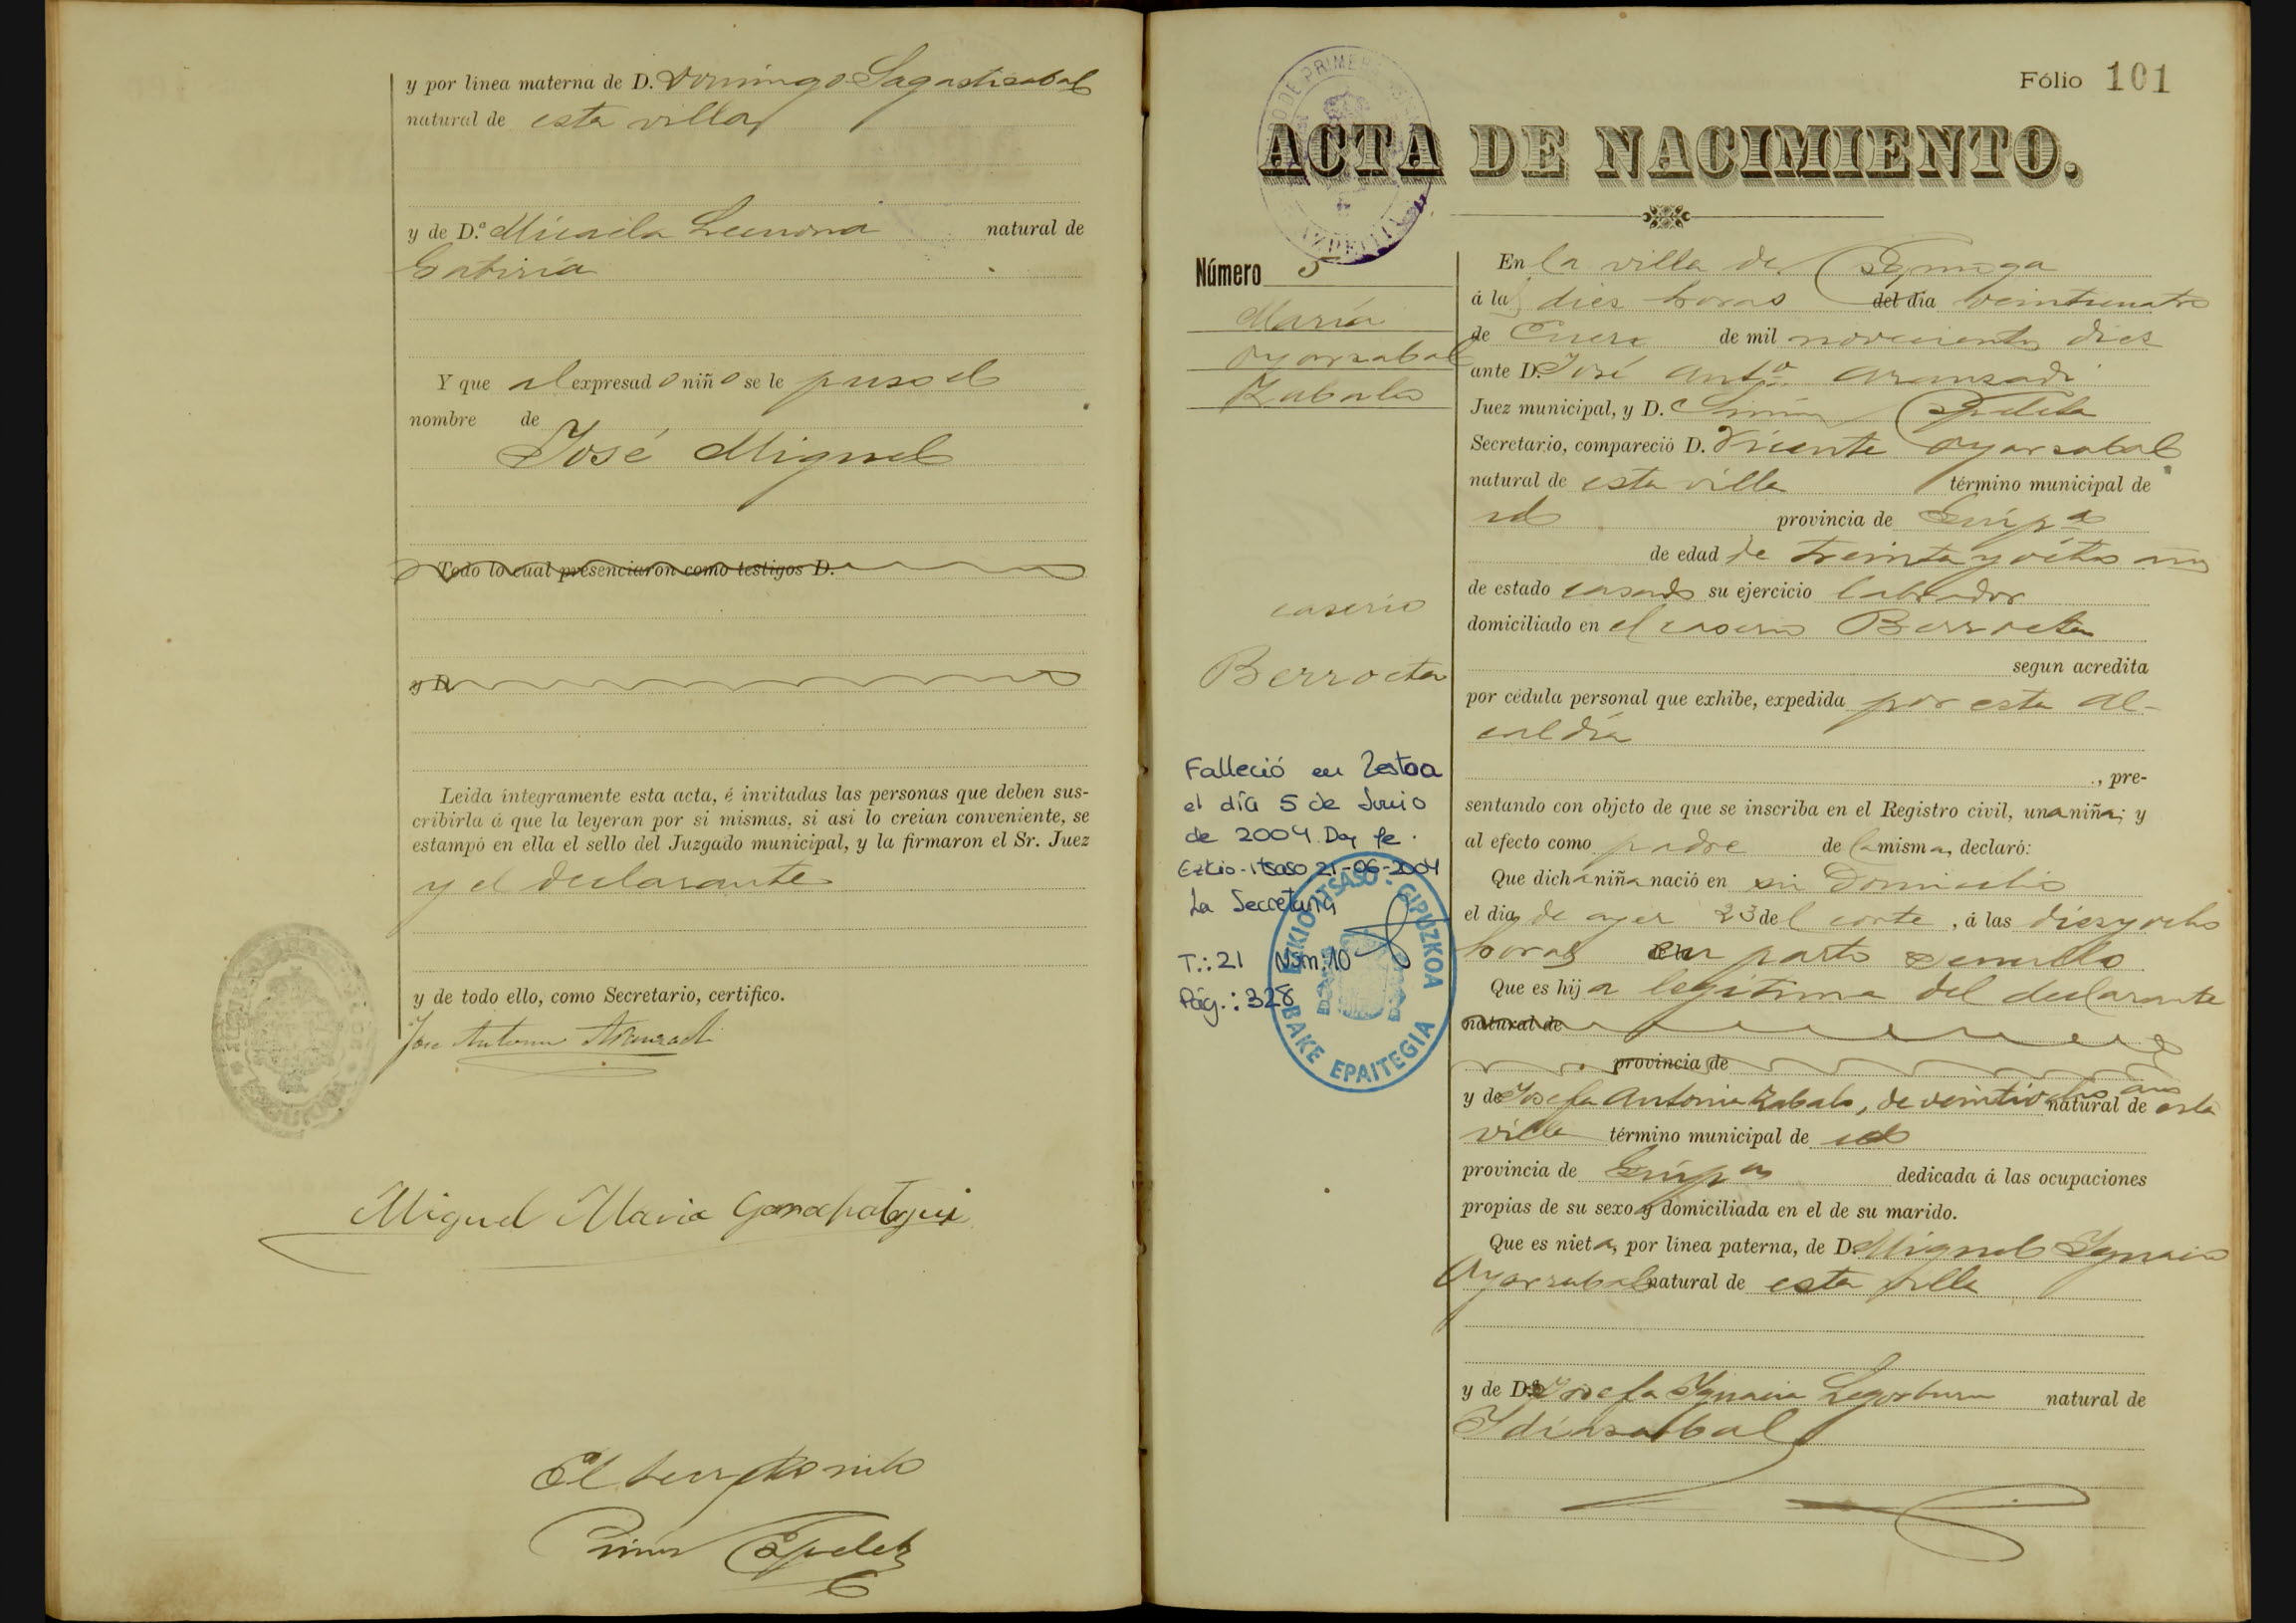 y por linea materna de D. Domingo Sagastizabal
natural de esta villa
y de D.ª Micaela Lecuona natural de
Gabiria
Y que al expresado niño se le puso el
nombre de
José Miguel
Todo lo cual presenciaron como testigos D.
y D.
Leida integramente esta acta, é invitadas las personas que deben sus-
cribirla á que la leyeran por si mismas, si asi lo creian conveniente, se
estampó en ella el sello del Juzgado municipal, y la firmaron el Sr. Juez
y el declarante
y de todo ello, como Secretario, certifico.
Jose Antonio Aranzadi
Miguel Maria Garachategui
El
Simon
Fólio 101
ACTA DE NACIMIENTO.
Número 5
María
Oyarzabal
Zabala
caserio
Berroeta
Falleció en Zestoa
el día 5 de Junio
de 2004. Doy fe.
Ezkio-Itsaso 21-06-2004
La Secretaria
T.: 21 Núm: 10
Pág.: 328
EZKIO-ITSASO - GIPUZKOA
BAKE EPAITEGIA
En la villa de
á las diez horas del dia veinticuatro
de Enero de mil novecientos diez
ante D. José Antº Aranzadi
Juez municipal, y D. Simón
Secretario, compareció D. Vicente Oyarzabal
natural de esta villa término municipal de
id provincia de Guipª
de edad de treinta y ocho años
de estado casado su ejercicio labrador
domiciliado en el caserio Berroeta
segun acredita
por cédula personal que exhibe, expedida por esta Al-
caldía
, pre-
sentando con objeto de que se inscriba en el Registro civil, una niña; y
al efecto como padre de la misma, declaró:
Que dicha niña nació en su Domicilio
el dia de ayer 23 del corte, á las diez y ocho
horas en parto sencillo
Que es hija legítima del declarante
natural de
provincia de
y de Josefa Antonia Zabala, de veintiocho años natural de esta
villa término municipal de id
provincia de Guipª dedicada á las ocupaciones
propias de su sexo y domiciliada en el de su marido.
Que es nieta, por linea paterna, de D. Miguel Ignacio
Oyarzabal natural de esta villa
y de D.ª Josefa Ignacia Legorburu natural de
Idiazabal